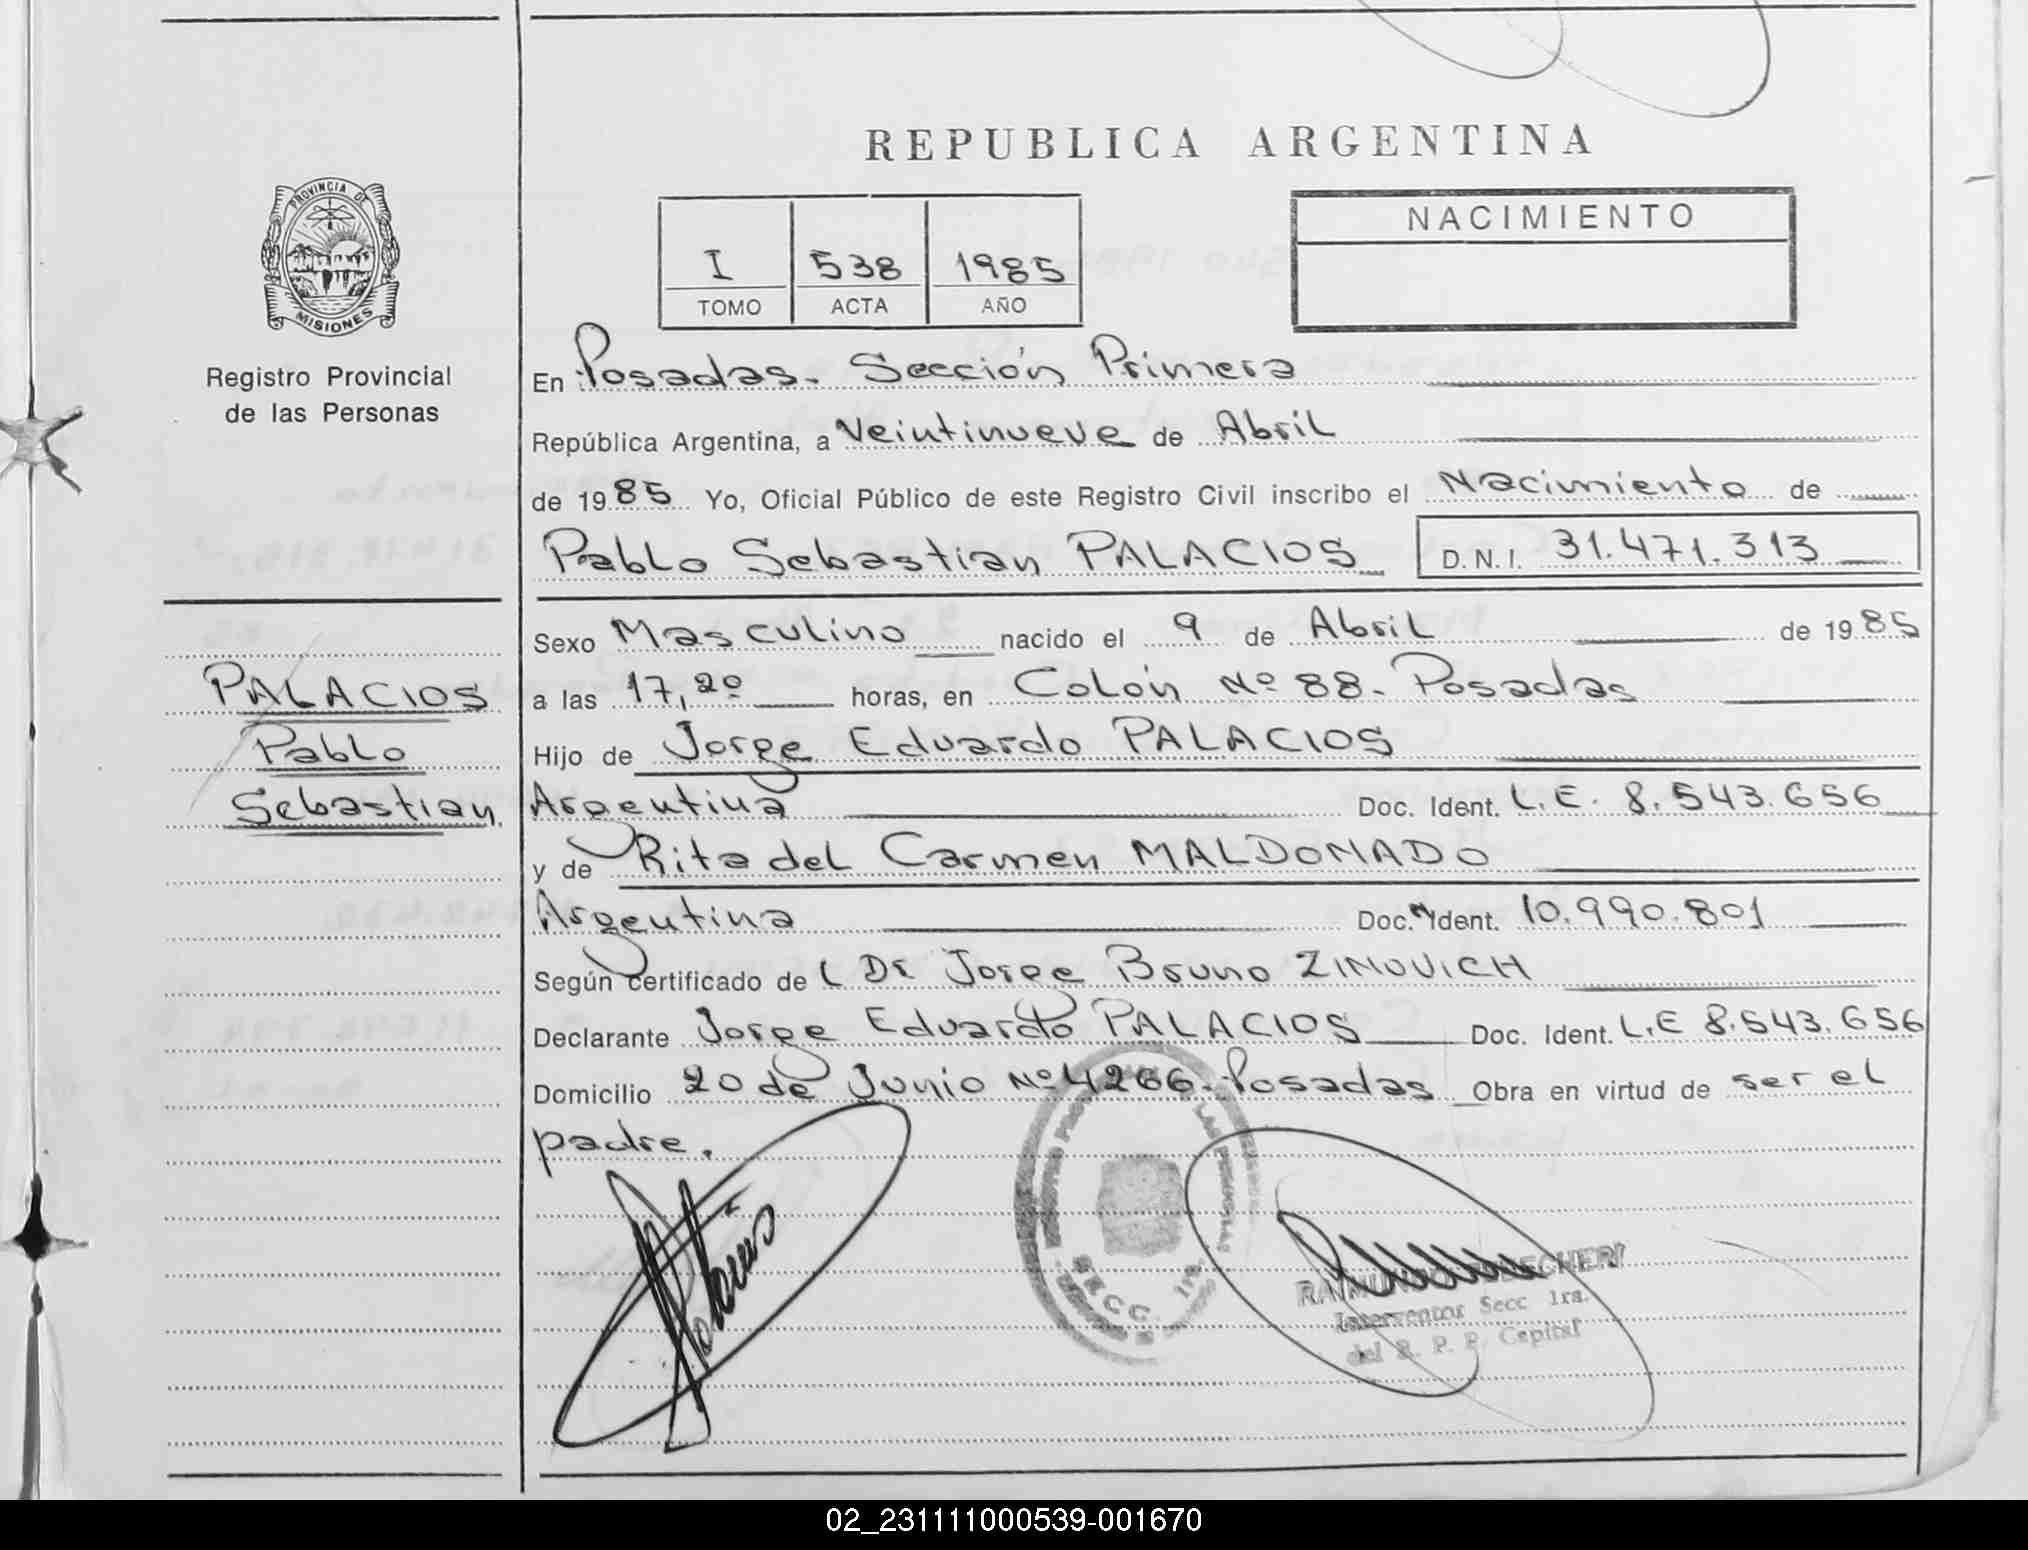 REPUBLICA ARGENTINA
PROVINCIA DE
MISIONES
Registro Provincial
de las Personas
I 538 1985
TOMO ACTA AÑO
NACIMIENTO
En Posadas. Sección Primera
República Argentina, a Veintinueve de Abril
de 1985 Yo, Oficial Público de este Registro Civil inscribo el Nacimiento de
Pablo Sebastian PALACIOS D.N.I. 31.471.313
Sexo Masculino nacido el 9 de Abril de 1985
PALACIOS
Pablo
Sebastian
a las 17,20 horas, en Colón Nº 88. Posadas
Hijo de Jorge Eduardo PALACIOS
Argentina Doc. Ident. L.E. 8.543.656
y de Rita del Carmen MALDONADO
Argentina Doc. Ident. 10.990.801
Según certificado de L Dr Jorge Bruno ZINOVICH
Declarante Jorge Eduardo PALACIOS Doc. Ident. L.E 8.543.656
Domicilio 20 de Junio Nº 4266. Posadas Obra en virtud de ser el
padre.
LAS PERSONAS
SECC. 1ra.
Interventor Secc 1ra.
del R. P. P. Capital
02_231111000539-001670